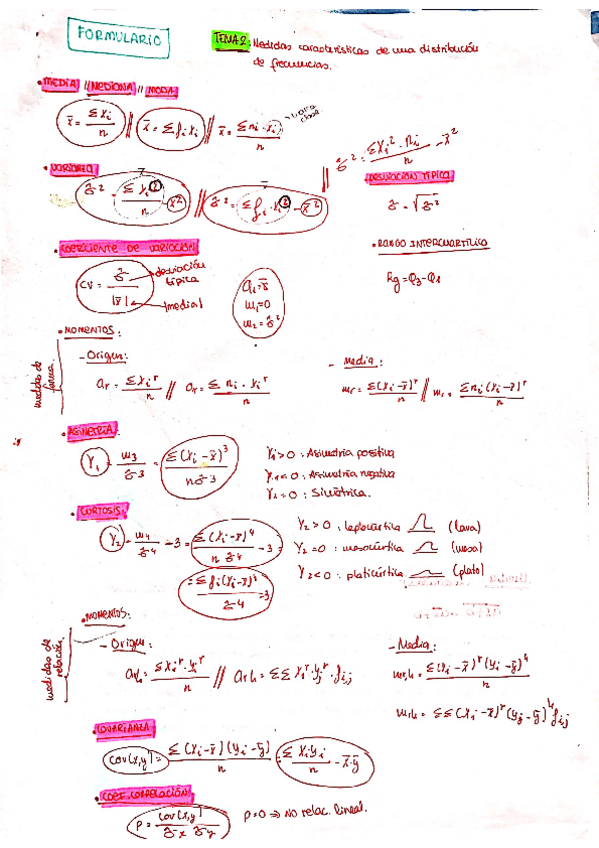 FORMULARIO
TEMA 2: Medidas características de una distribución
de frecuencias.
• MEDIA // MEDIANA // MODA
x̄ = Σxi / n // x̄ = Σ fi xi // x̄ = Σni · xi / n
• VARIANZA
σ̂² = Σxi² / n - x̄² // σ̂² = Σ fi · xi² - x̄² // σ̂² = Σxi² · ni / n - x̄²
DESVIACIÓN TÍPICA
σ̂ = √σ̂²
• COEFICIENTE DE VARIACIÓN
CV = σ̂ / |x̄|
desviación
típica
|media|
a₁ = x̄
m₁ = 0
m₂ = σ̂²
• RANGO INTERCUARTÍLICO
Rg = Q₃ - Q₁
medidas de
forma.
• MOMENTOS:
- Origen:
ar = Σxi^r / n // ar = Σ ni · xi^r / n
- Media:
mr = Σ(xi - x̄)^r / n // mr = Σni (xi - x̄)^r / n
• ASIMETRÍA
γ₁ = m₃ / σ̂³ = Σ(xi - x̄)³ / nσ̂³
γ₁ > 0 : Asimetría positiva
γ₁ < 0 : Asimetría negativa
γ₁ = 0 : Simétrica.
• CURTOSIS
γ₂ = m₄ / σ̂⁴ - 3 = Σ(xi - x̄)⁴ / n σ̂⁴ - 3 =
γ₂ > 0 : leptocúrtica (lava)
γ₂ = 0 : mesocúrtica (mesa)
γ₂ < 0 : platicúrtica (plato)
medidas de
relación.
• MOMENTOS:
- Origen:
arh = Σxi^r · yi^r / n // arh = ΣΣ xi^r · yj^r · fi,j
- Media:
mrh = Σ(xi - x̄)^r (yi - ȳ)^h / n
mrh = ΣΣ (xi - x̄)^r (yj - ȳ)^h fij
• COVARIANZA
cov(x,y) = Σ(xi - x̄)(yi - ȳ) / n = Σxiyi / n - x̄·ȳ
• COEF. CORRELACIÓN
ρ = cov(x,y) / σ̂x σ̂y
ρ = 0 ⇒ No relac. lineal.